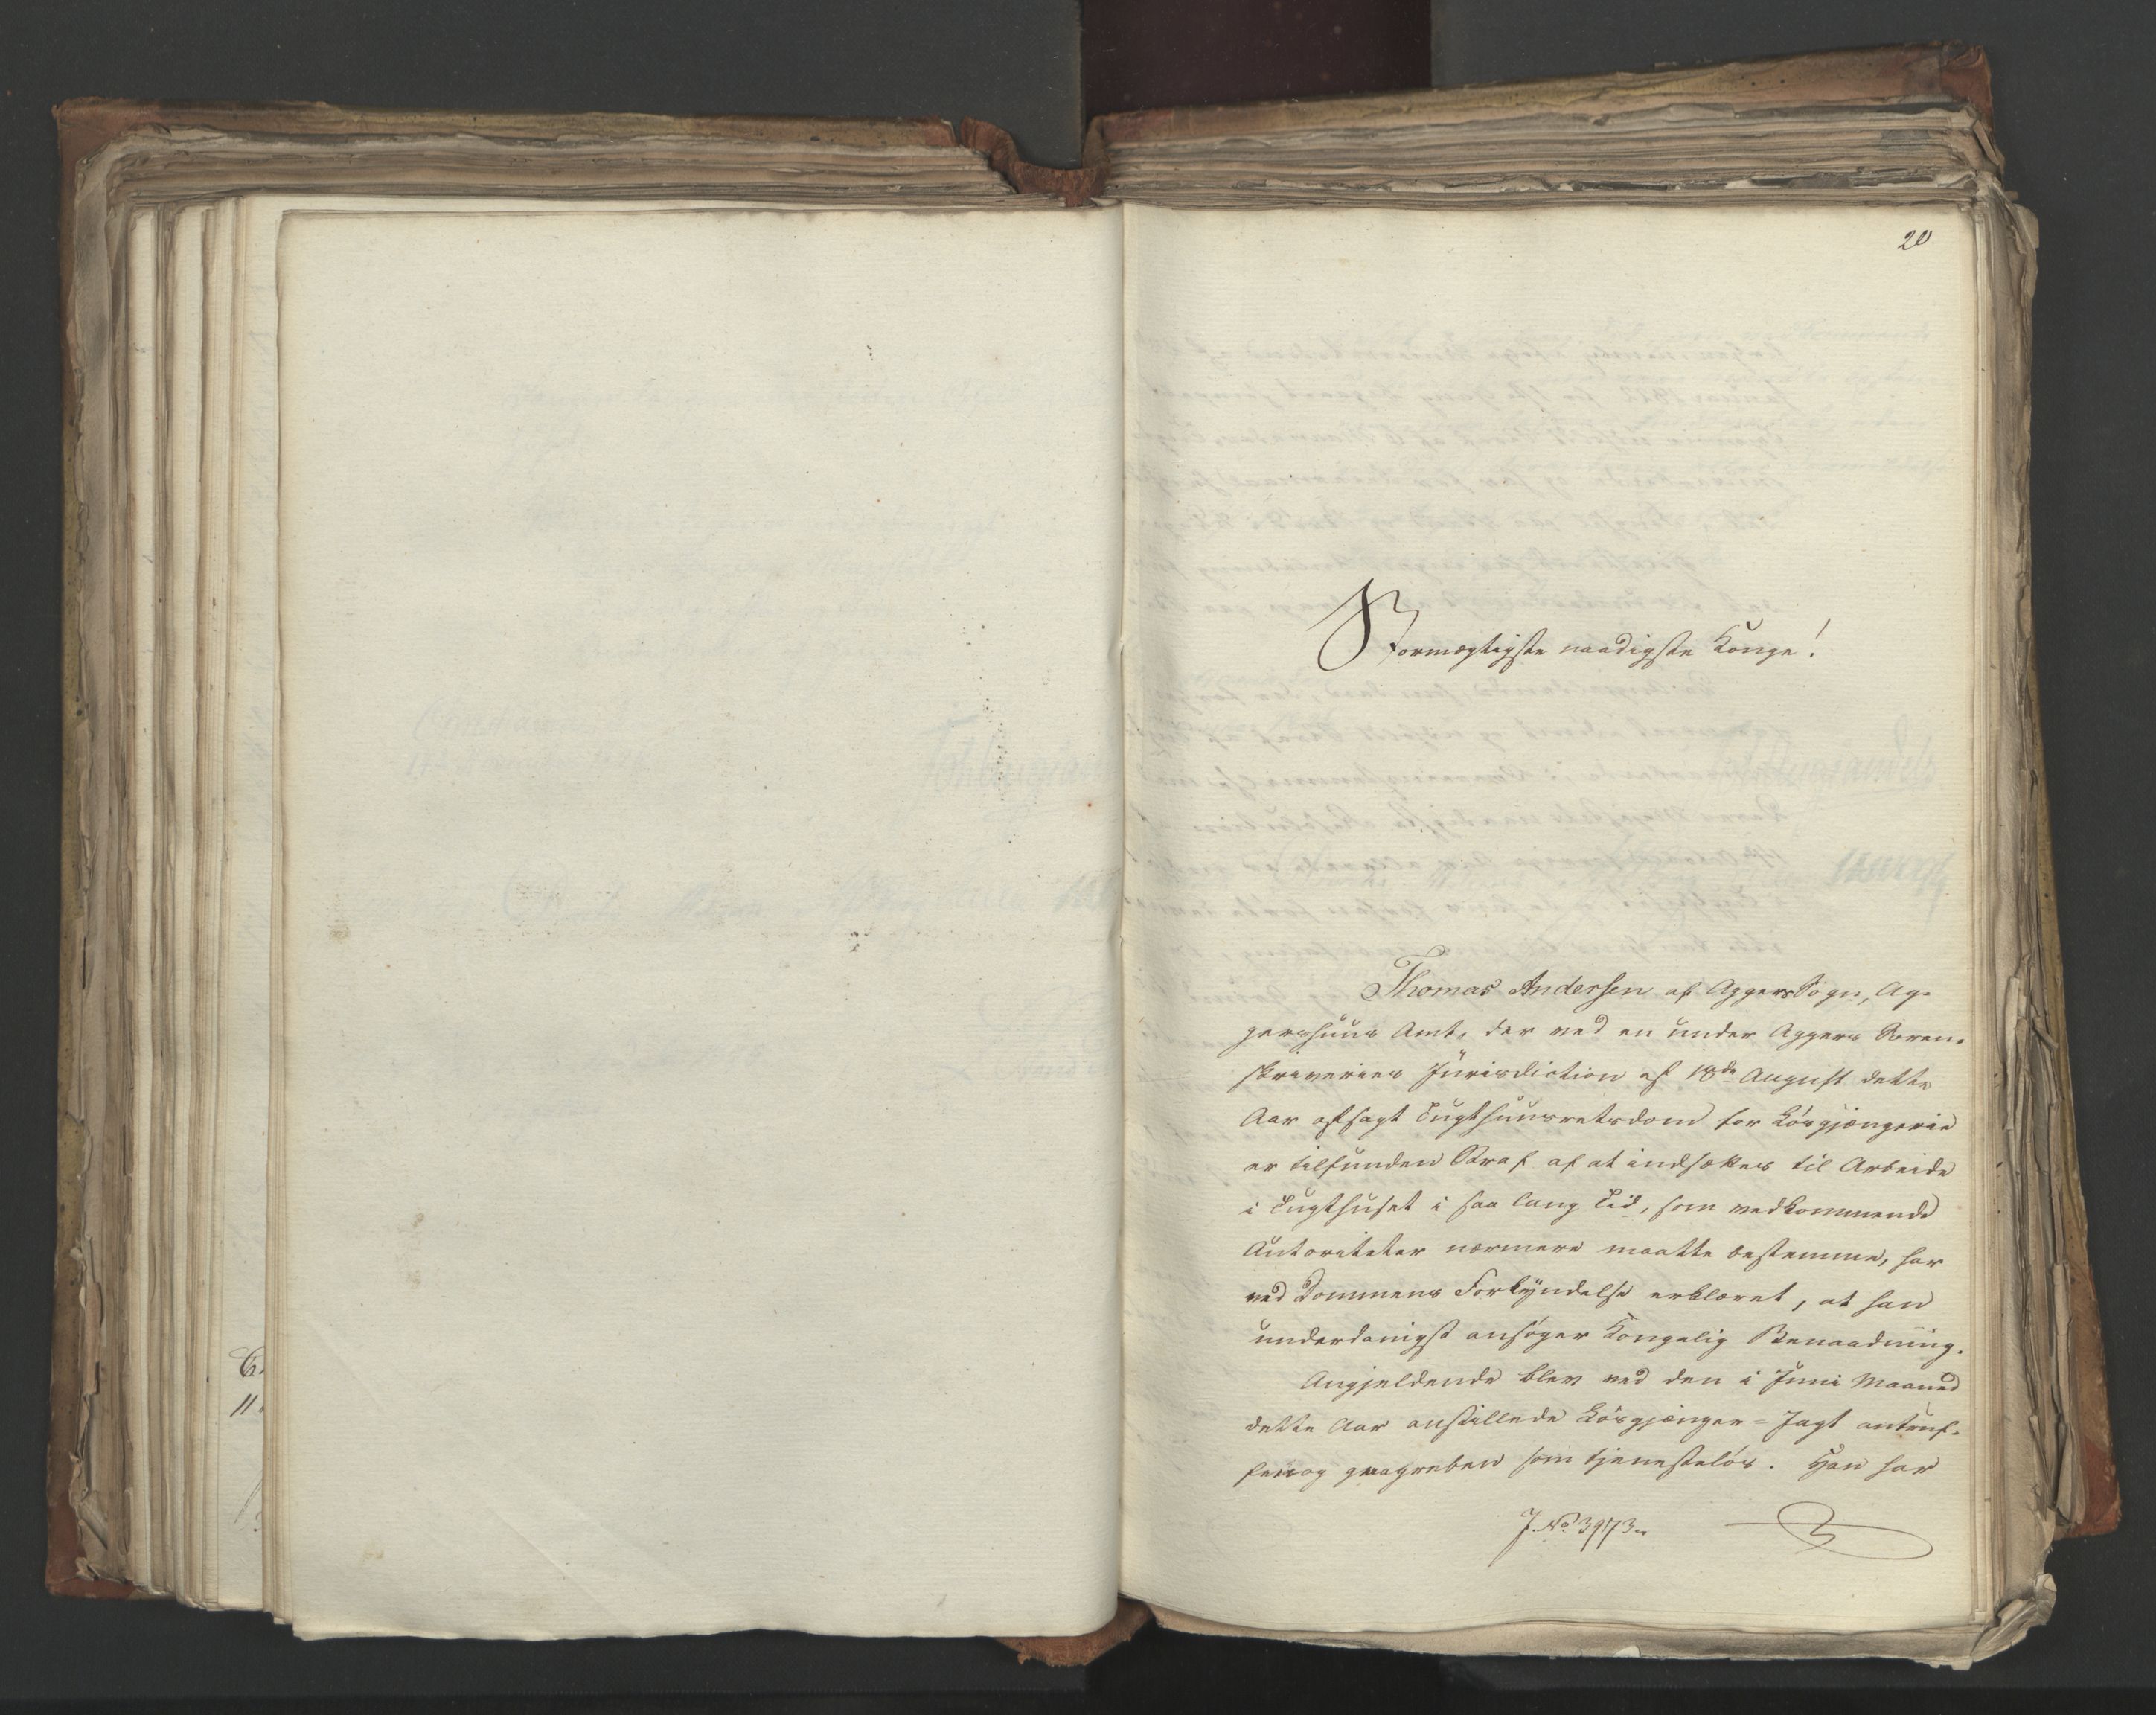 20
Stormægtigste naadigste Konge!
Thomas Andersen af Aggers Sogn, Ag-
gershuus Amt, der ved en under Aggers Soren-
skriveries Jurisdiction af 18de August dette
Aar afsagt Tugthuusretsdom for Løsgjængerie
er tilfunden Straf af at indsættes til Arbeide
i Tugthuset i saa lang Tid, som vedkommende
Autoriteter nærmere maatte bestemme, har
ved Dommens Forkyndelse erklæret, at han
underdanigst ansøger Kongelig Benaadning.
Angjeldende blev ved den i Juni Maaned
dette Aar anstillede Løsgjænger-Jagt antruf-
fen og paagreben som tjenesteløs. Han har
J. No 3973.